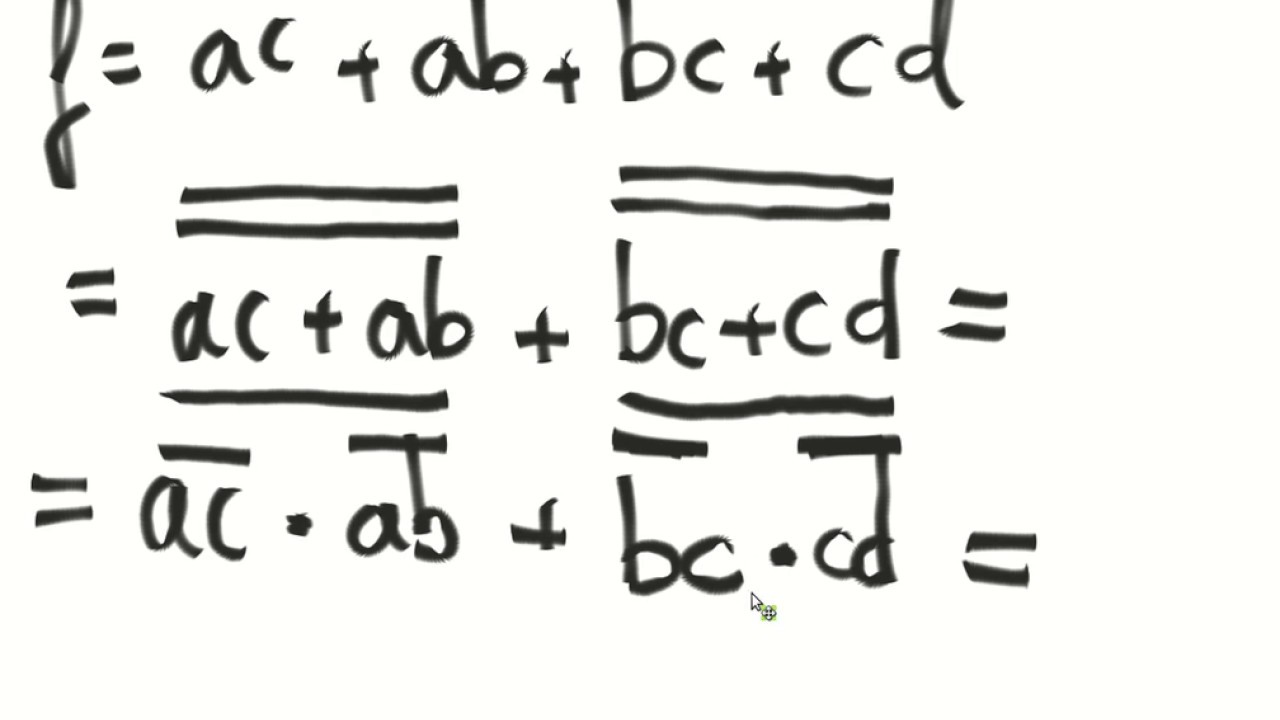 f = ac + ab + bc + cd
= \overline{\overline{ac + ab}} + \overline{\overline{bc + cd}} =
= \overline{\overline{ac} · \overline{ab}} + \overline{\overline{bc} · \overline{cd}} =